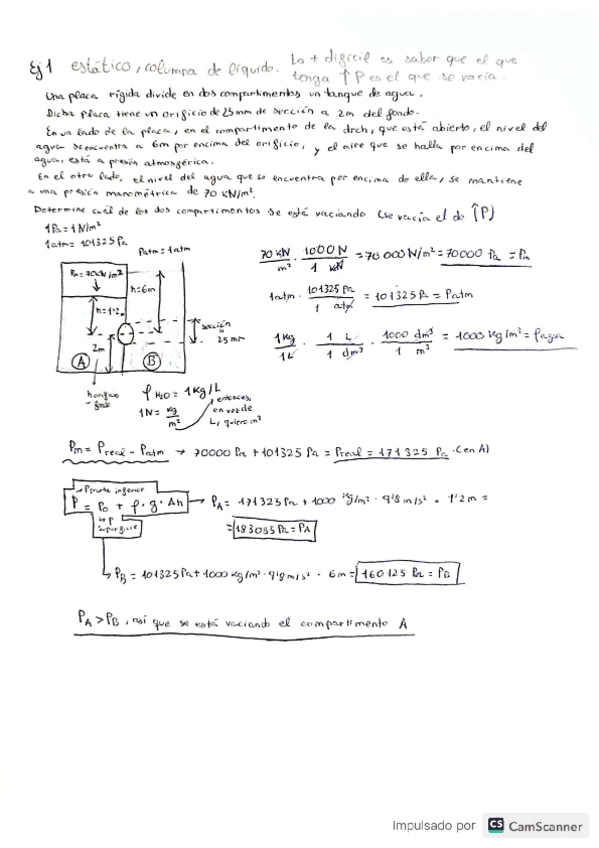 Ej 1 estático, columna de líquido. Lo + difícil es saber que el que
tenga ↑P es el que se vacía.
Una placa rígida divide en dos compartimentos un tanque de agua.
Dicha placa tiene un orificio de 25 mm de sección a 2m del fondo.
En un lado de la placa, en el compartimento de la drch, que está abierto, el nivel del
agua se encuentra a 6m por encima del orificio, y el aire que se halla por encima del
agua, está a presión atmosférica.
En el otro lado, el nivel del agua que se encuentra por encima de ella, se mantiene
a una presión manométrica de 70 KN/m².
Determine cuál de los dos compartimentos se está vaciando (se vacía el de ↑P)
1Pa = 1 N/m²
1atm = 101325 Pa
Patm = 1atm
Pm = 70KN/m²
h=6m
h=1'2m
2m
sección
25 mm
A B
70 KN/m² · 1000 N/1 KN = 70 000 N/m² = 70000 Pa = Pm
1atm · 101325 Pa/1 atm = 101325 Pa = Patm
1Kg/1L · 1 L/1 dm³ · 1000 dm³/1 m³ = 1000 Kg/m³ = ρagua
h orificio
- fondo
ρ H2O = 1 Kg/L
1N = Kg/m²
entonces,
en vez de
L, quiero m³
Pm = Preal - Patm → 70000 Pa + 101325 Pa = Preal = 171 325 Pa (en A)
P punto inferior
P = P0 + ρ · g · Δh → PA = 171325 Pa + 1000 Kg/m³ · 9'8 m/s² · 1'2 m =
superficie
= 183085 Pa = PA
PB = 101325 Pa + 1000 Kg/m³ · 9'8 m/s² · 6m = 160125 Pa = PB
PA > PB, así que se está vaciando el compartimento A
Impulsado por CS CamScanner